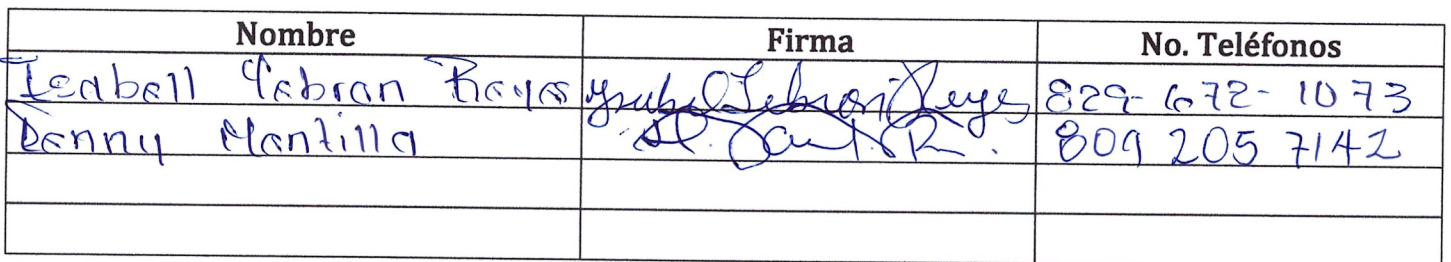 Nombre Firma No. Teléfonos
Isabell Lebran Reyes Ysabel Lebron Reyes 829-672-1073
Danny Mantilla 809 205 7142